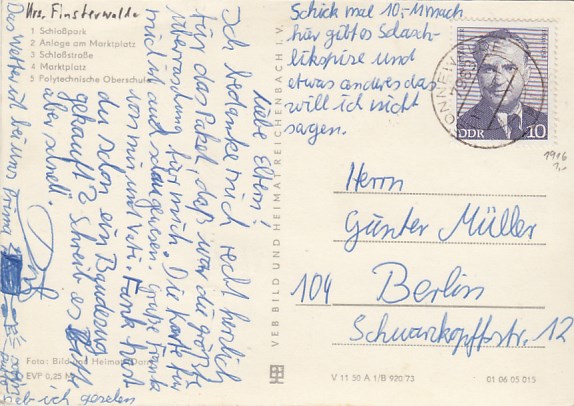 Krs. Finsterwalde
1 Schloßpark
2 Anlage am Marktplatz
3 Schloßstraße
4 Marktplatz
5 Polytechnische Oberschule
Liebe Eltern!
Ich bedanke mich recht herlich
für das Paket, daß war die größte
Überraschung für mich. Die Karte für
mich ist auch schau gewesen. Grüße Frank
von mir und Vati. Frank hast
du schon ein Banderun
gekauft? Schreib es bitte
aber schnell.
Das Wetter ist bei uns Prima
hab ich gesehen
Foto: Bild und Heimat
EVP 0,25 M
VEB BILD UND HEIMAT REICHENBACH I. V.
Schick mal 10,-M mach
hir gibt es Schach-
likspiese und
etwas anderes das
will ich nicht
sagen.
DDR 10
1916
1,-
Herrn
Günter Müller
104 Berlin
Schwarzkopffstr. 12
V 11 50 A 1/B 920 73
01 06 05 015